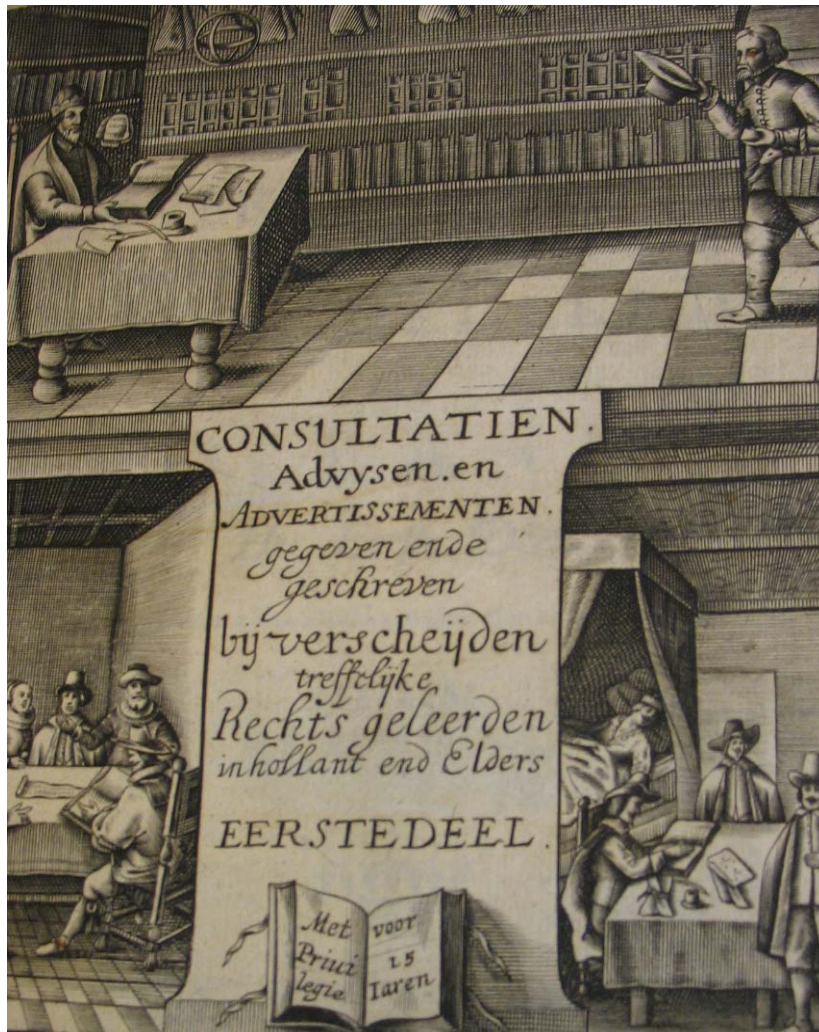 CONSULTATIEN.
Advysen. en
ADVERTISSEMENTEN.
gegeven ende
geschreven
bij verscheijden
treffelijke
Rechts geleerden
in hollant end Elders
EERSTE DEEL.
Met
Privi
legie
voor
15
Iaren